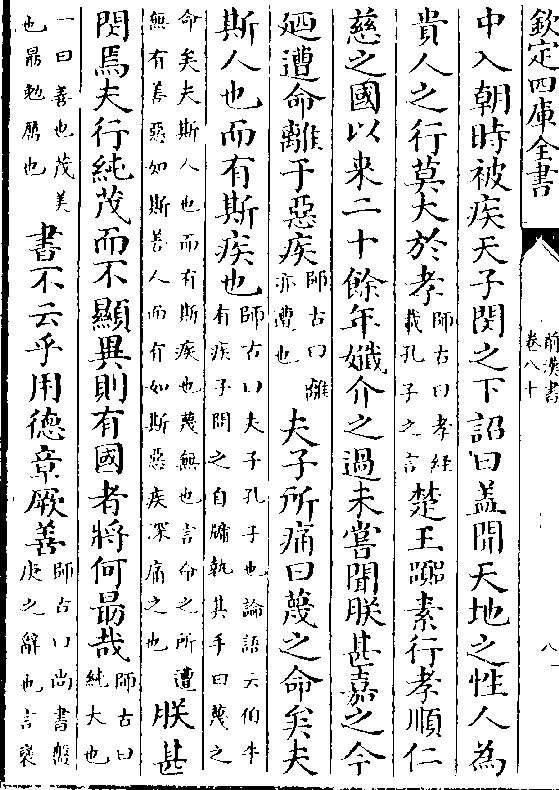 欽定四庫全書
前漢書
卷八十
八
中入朝時被疾天子閔之下詔曰蓋聞天地之性人為
貴人之行莫大於孝師古曰孝經
載孔子之言楚王囂素行孝順仁
慈之國以来二十餘年孅介之過未嘗聞朕甚嘉之今
廼遭命離于惡疾師古曰離
亦遭也夫子所痛曰蔑之命矣夫
斯人也而有斯疾也師古曰夫子孔子也論語云伯牛
有疾子問之自牖執其手曰蔑之
命矣夫斯人也而有斯疾也蔑無也言命之所遭
無有善惡如斯善人而有如斯惡疾深痛之也朕甚
閔焉夫行純茂而不顯異則有國者將何勗哉師古曰
純大也
一曰善也茂美
也勗勉厲也書不云乎用德章厥善師古曰尚書盤
庚之辭也言襃